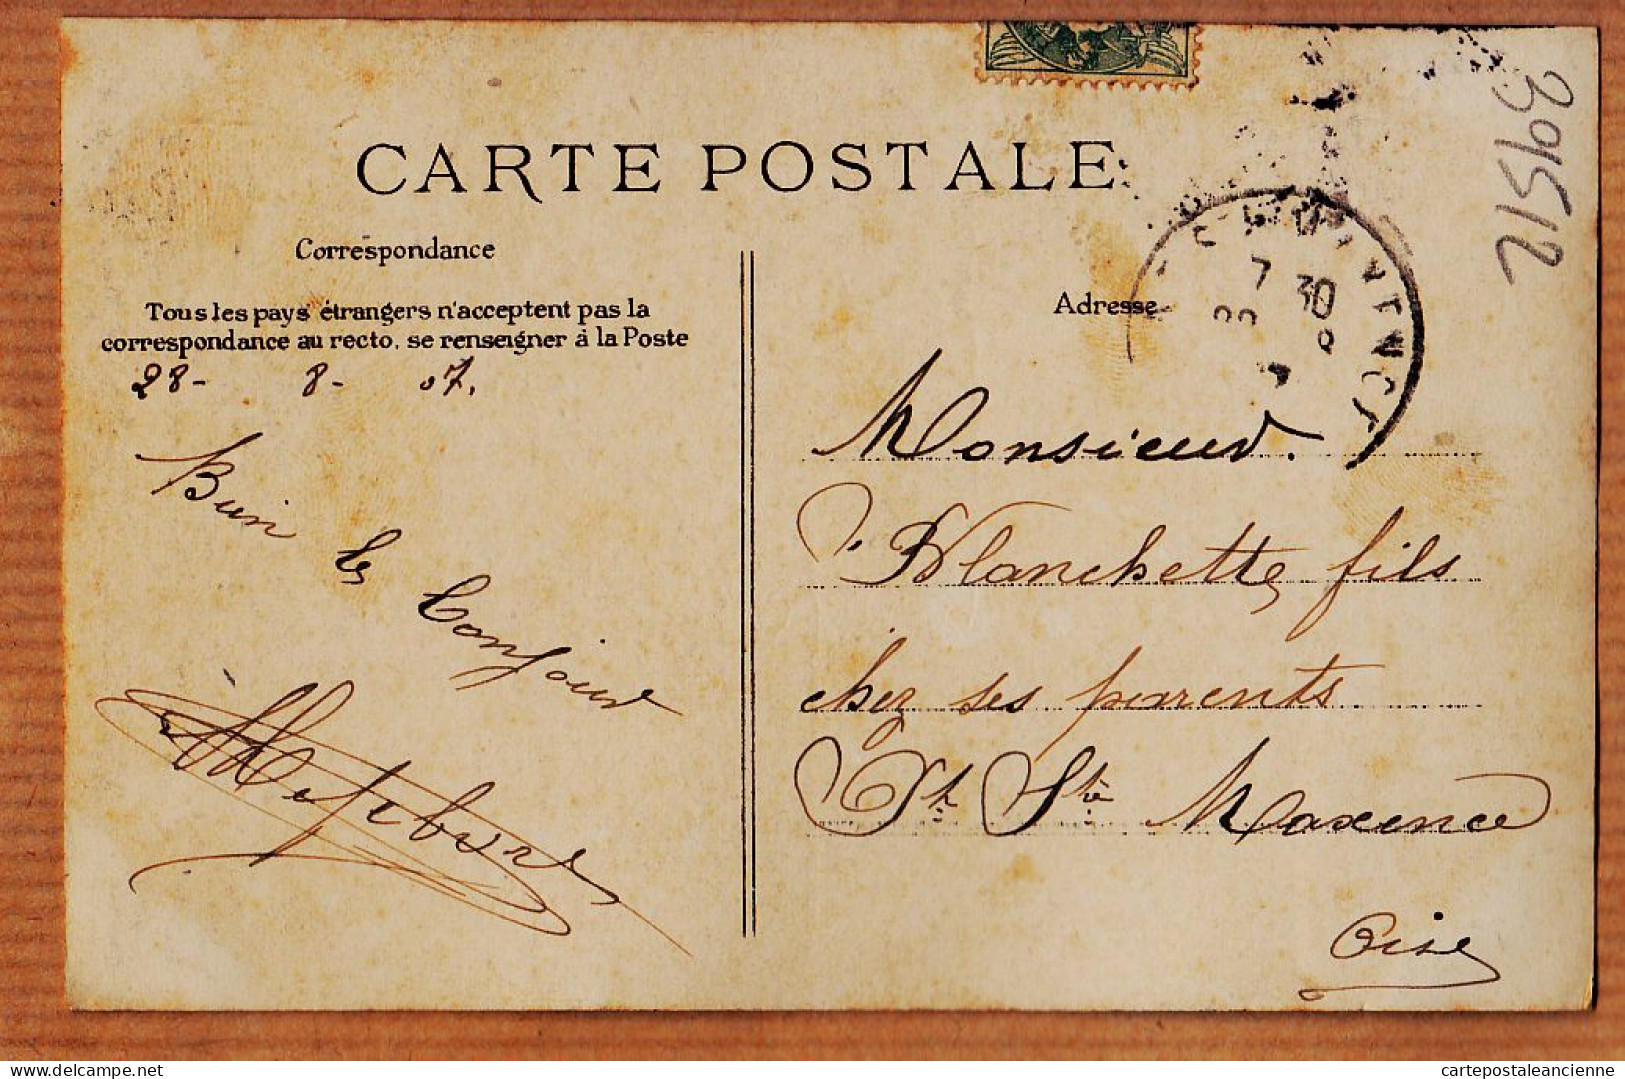 CARTE POSTALE
Correspondance
Tous les pays étrangers n'acceptent pas la
correspondance au recto, se renseigner à la Poste
28- 8- 07.
Bien le bonjour
Lefebvre
Adresse
7 30
Monsieur.
Blanchette fils
chez ses parents
Pt Ste Maxence
Oise
39512
cartepostaleancienne
www.delcampe.net cartepostaleancienne